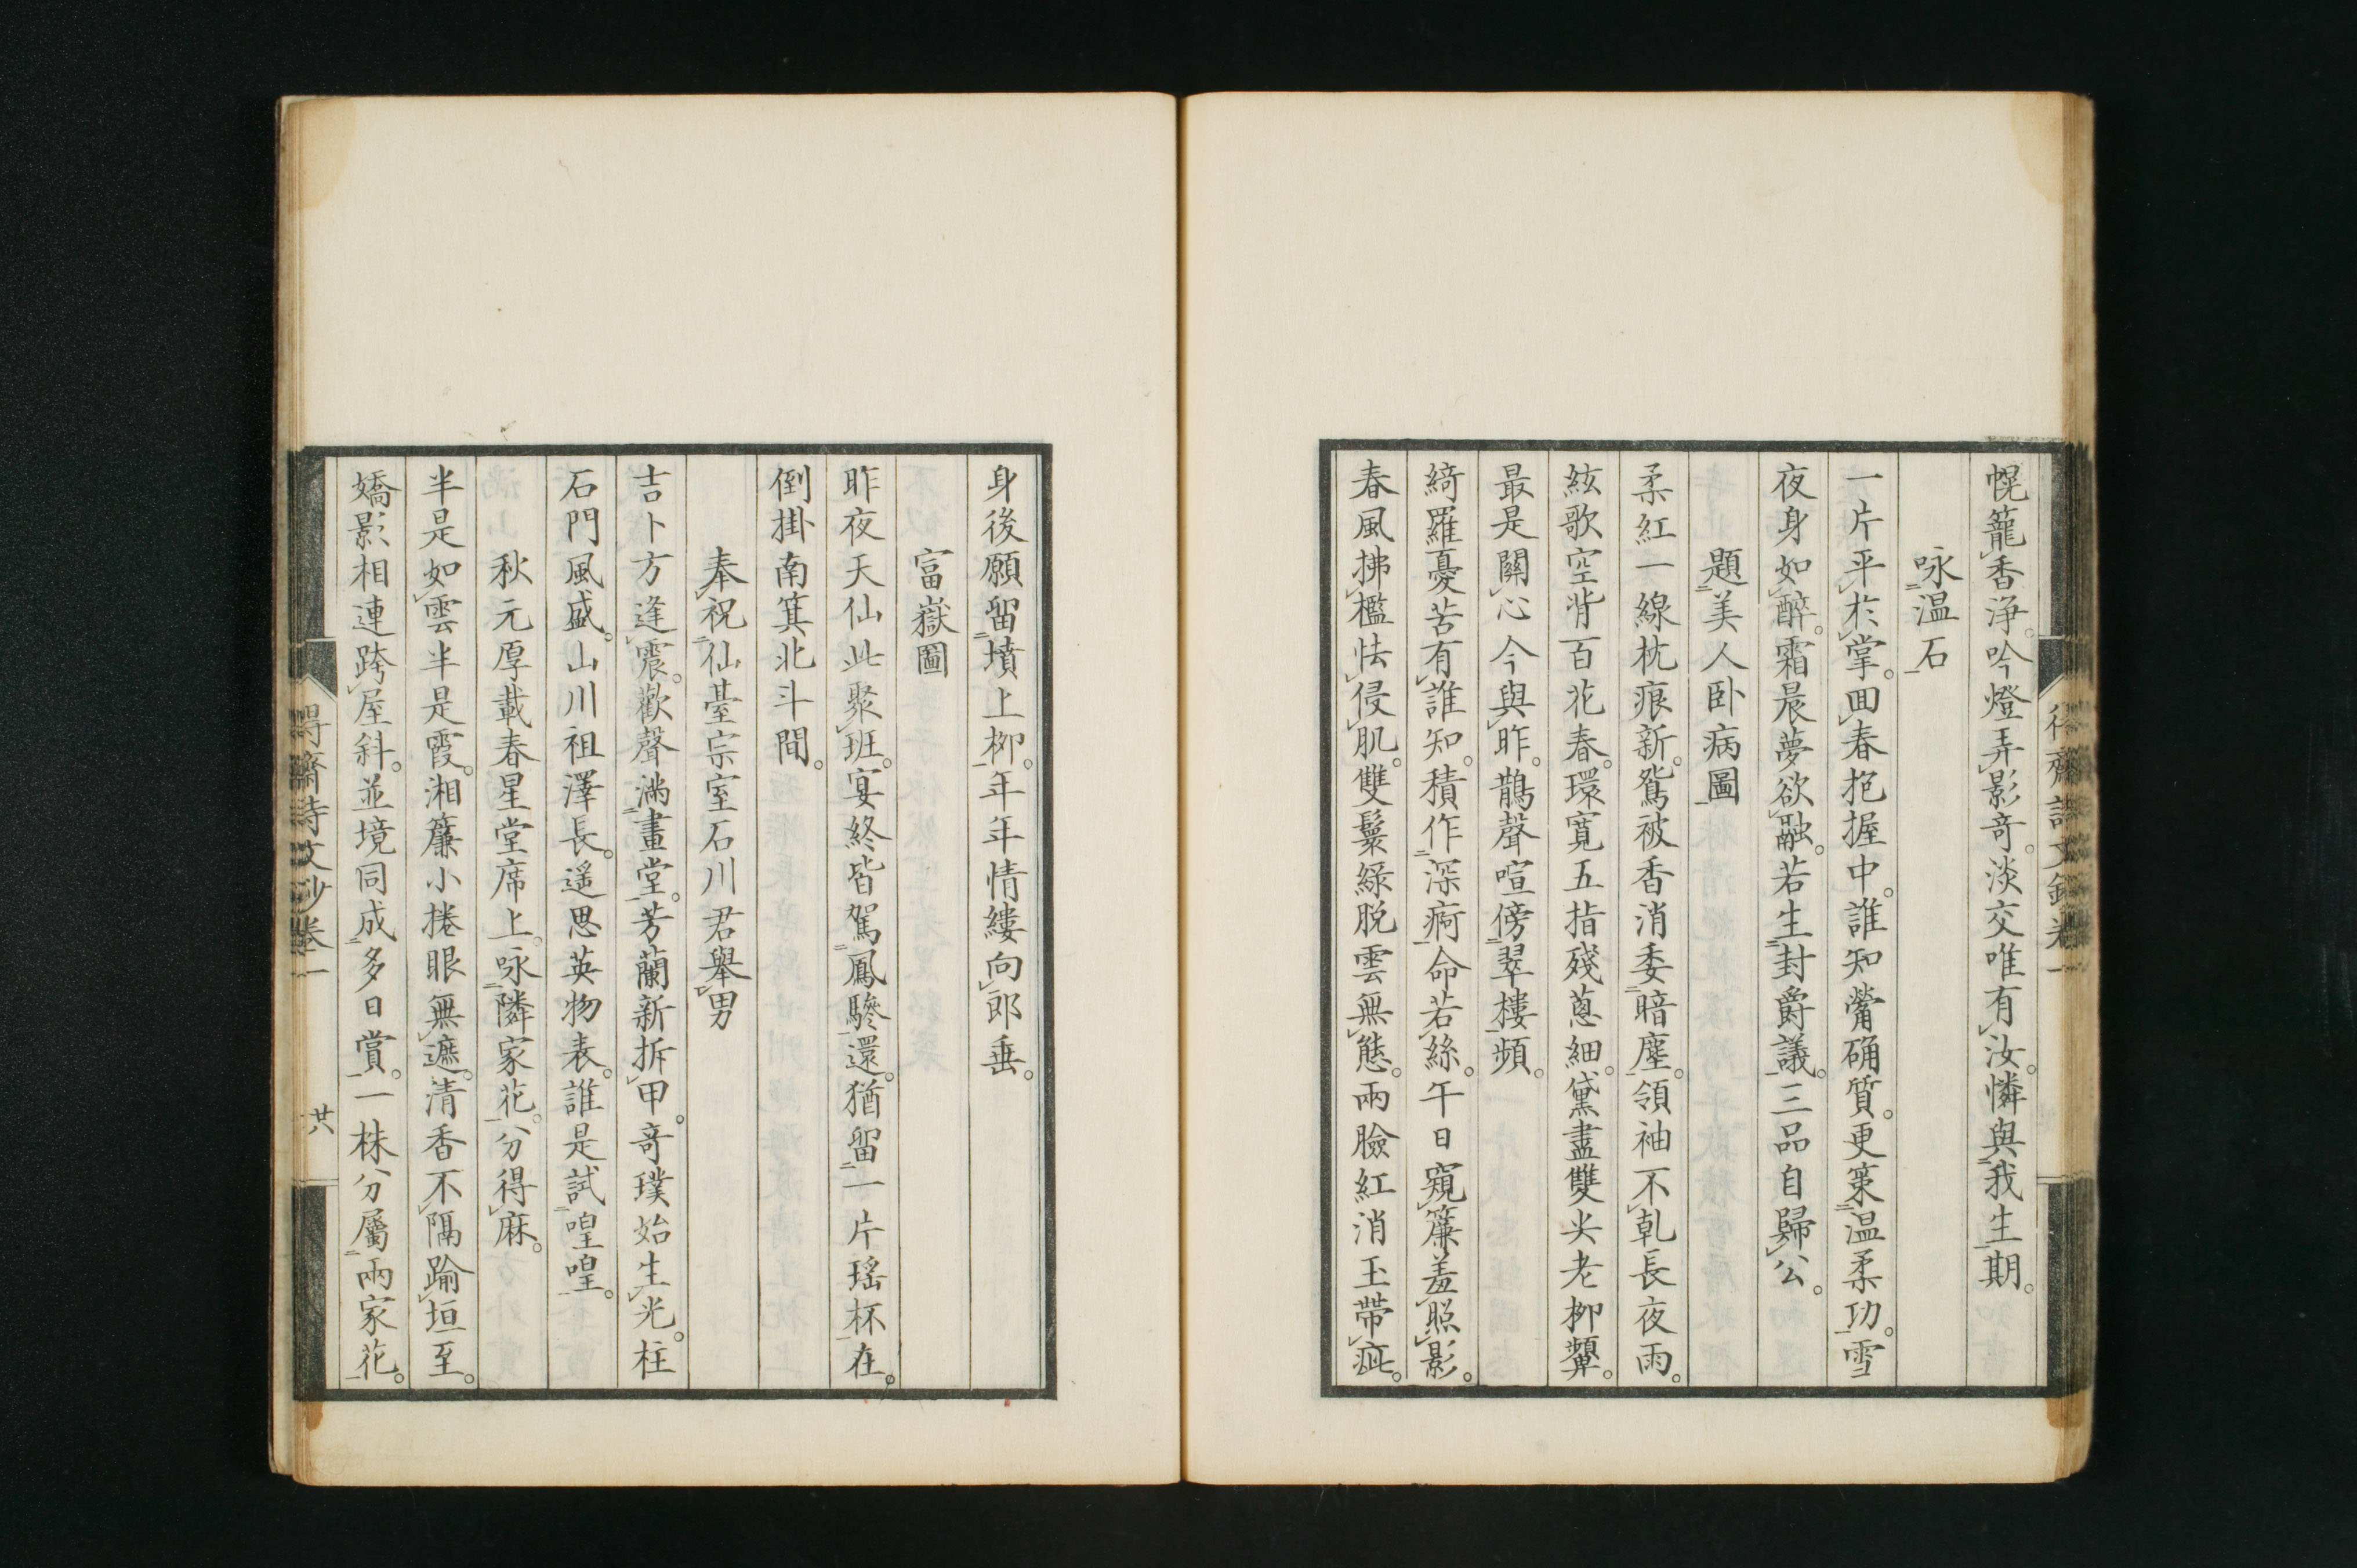 幌籠香浄。吟燈弄影奇。淡交唯有汝。憐與我生期。
咏温石
一片平於掌。回春抱握中。誰知觜确質。更策温柔功。雪
夜身如醉。霜晨夢欲融。若生封爵議。三品自歸公。
題美人卧病圖
柔紅一線枕痕新。鴛被香消委暗塵。領袖不乾長夜雨。
絃歌空背百花春。環寛五指殘蔥細。黛盡雙尖老柳顰。
最是關心今與昨。鵲聲喧傍翠樓頻。
綺羅憂苦有誰知。積作深痾命若絲。午日窺簾羞照影。
春風拂檻怯侵肌。雙鬟緑脱雲無態。兩臉紅消玉帶疵。
得齋詩文鈔卷一
身後願留墳上柳。年年情縷向郎垂。
富嶽圖
昨夜天仙此聚班。宴終皆駕鳳驂還。猶留一片瑤杯在。
倒掛南箕北斗間。
奉祝仙臺宗室石川君舉男
吉卜方逢震。歡聲滿畫堂。芳蘭新拆甲。奇璞始生光。柱
石門風盛。山川祖澤長。遥思英物表。誰是試喤喤。
秋元厚載春星堂席上。咏隣家花。分得麻。
半是如雲半是霞。湘簾小捲眼無遮。清香不隔踰垣至。
嬌影相連跨屋斜。並境同成多日賞。一株分屬兩家花。
得齋詩文鈔卷一
廿六